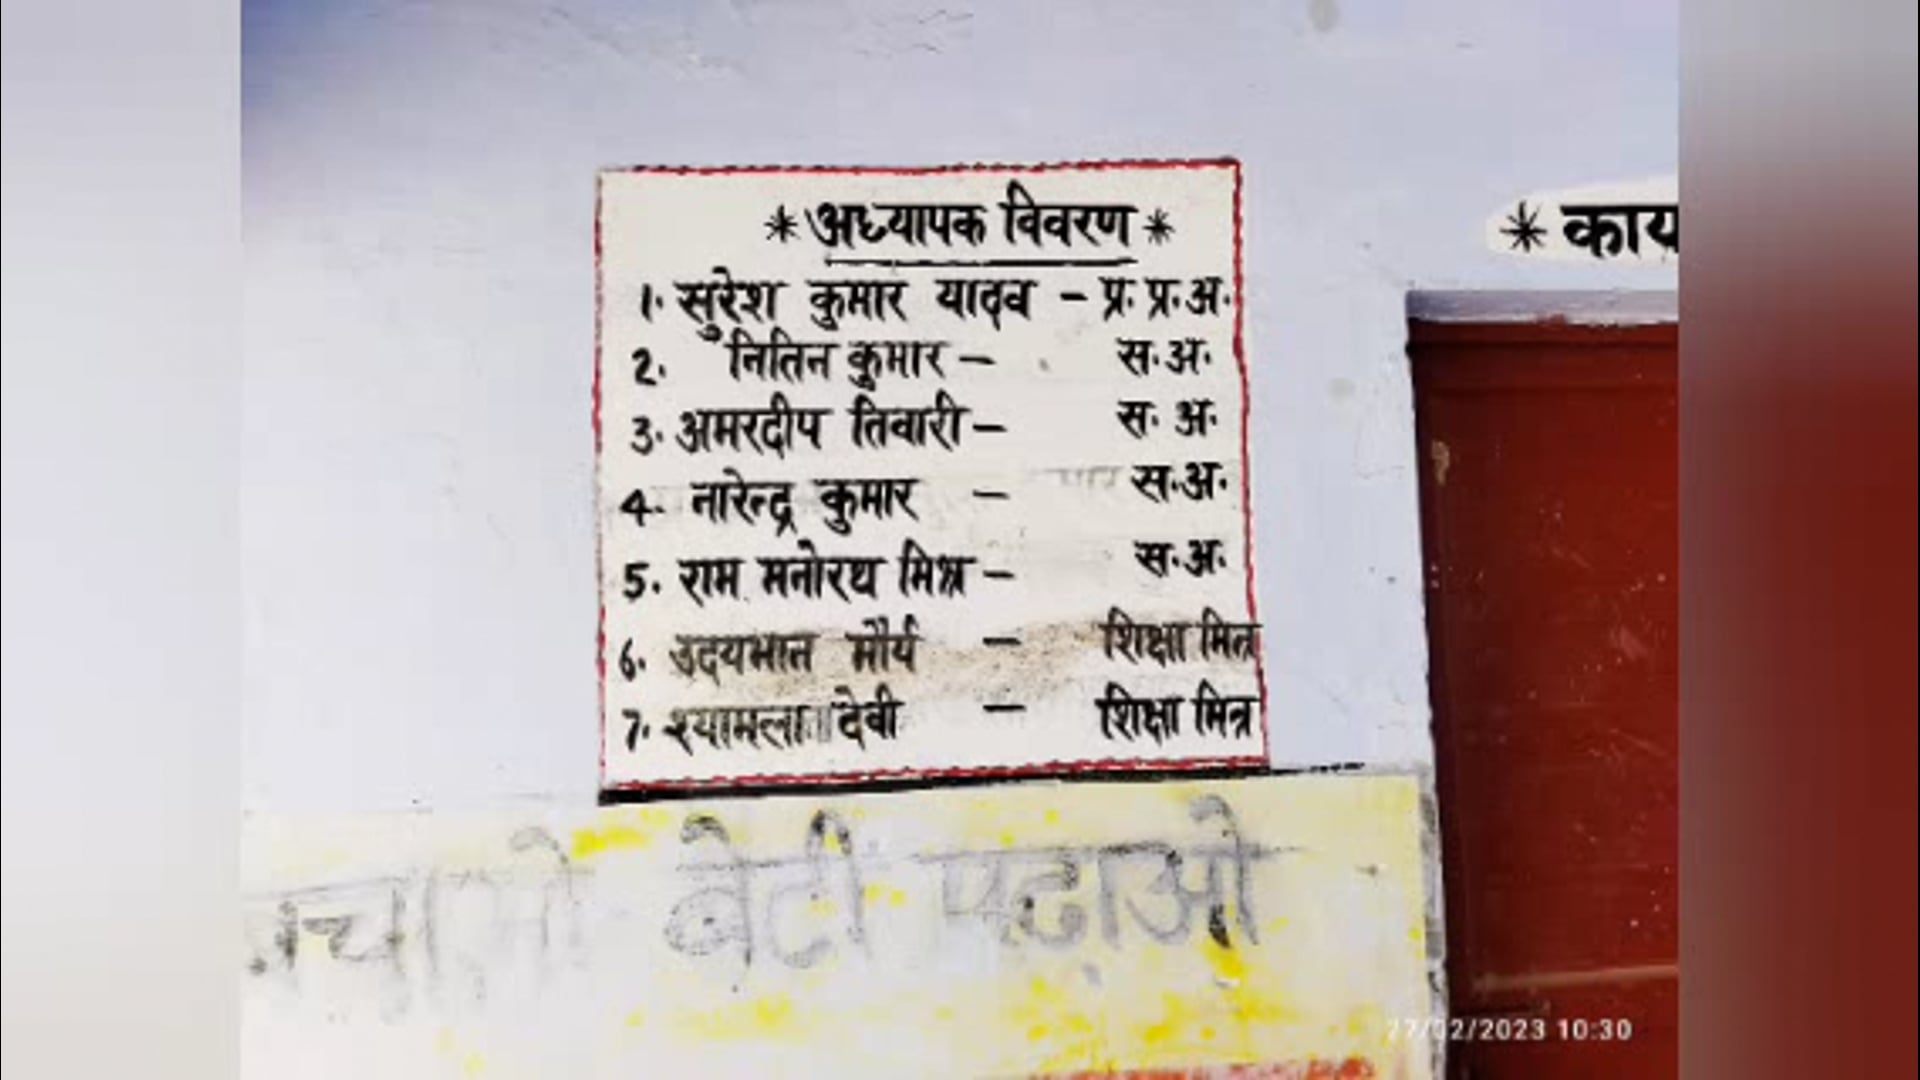 * अध्यापक विवरण *
1. सुरेश कुमार यादव - प्र. प्र. अ.
2. नितिन कुमार - स. अ.
3. अमरदीप तिवारी - स. अ.
4. नारेन्द्र कुमार - स. अ.
5. राम मनोरथ मिश्र - स. अ.
6. उदयभान मौर्य - शिक्षा मित्र
7. श्यामला देवी - शिक्षा मित्र
* काय
बचाओ बेटी पढाओ
27/02/2023 10:30